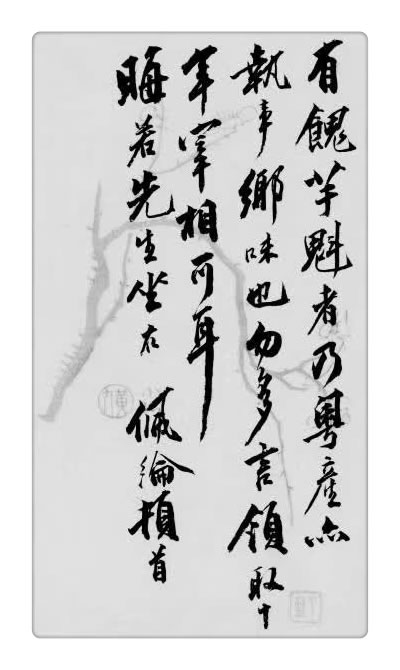 有餽芋魁者乃粵產亦
執事鄉味也勿多言領取十
年宰相可耳
晦若先生坐右 佩綸頓首